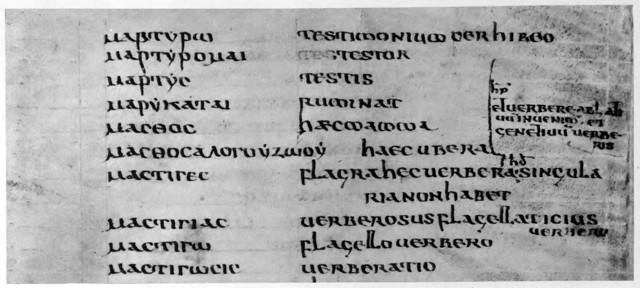 ΜΑΡΤΥΡΩ TESTIMONIUM PERHIBEO
ΜΑΡΤΥΡΟΜΑΙ TESTESTOR
ΜΑΡΤΥC TESTIS
ΜΑΡΥΚΑΤΑΙ RUMINAT
ΜΑCΘΟC HAECMAMMA
ΜΑCΘΟCΑΛΟΓΟΥΖΩΟΥ HAECUBERA
ΜΑCΤΙΓΕC FLAGRAHECUERBERA·SINGULA
RIANONHABET
ΜΑCΤΙΓΙΑC UERBEROSUSFLAGELLATICIUS
ΜΑCΤΙΓΩ FLAGELLOUERBERO
ΜΑCΤΙΓΩCΙC UERBERATIO
etuerbere·abl·ab
genetiuu uerbe
ris